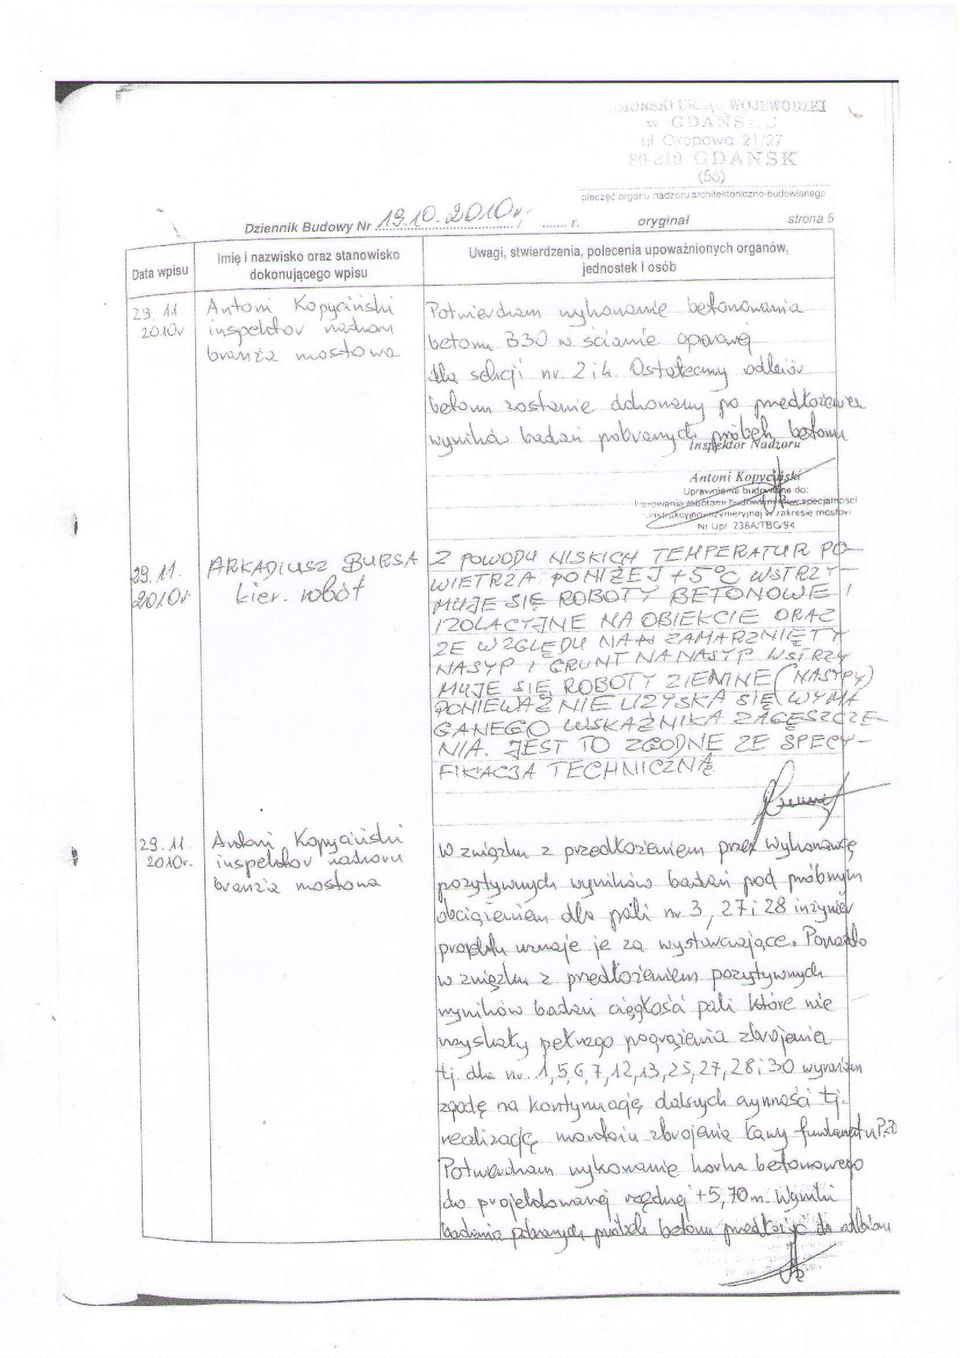 WOJEWÓDZKI
w GDAŃSKU
ul. Okopowa 21/27
80-810 GDAŃSK
(56)
pieczęć organu nadzoru architektoniczno-budowlanego
Dziennik Budowy Nr 19.10.2010r. r. oryginał strona 5
Data wpisu
Imię i nazwisko oraz stanowisko
dokonującego wpisu
Uwagi, stwierdzenia, polecenia upoważnionych organów,
jednostek i osób
29.11
2010r
Antoni Kopyciński
inspektor nadzoru
branża mostowa
Potwierdzam wykonanie betonowania
betonu B30 w ścianie oporowej
dla sekcji nr. 2 i 4. Ostateczny odbiór
betonu zostanie dokonany po przedłożeniu
wyników badań pobranych próbek betonu
Inspektor Nadzoru
Antoni Kopyciński
Uprawnienia budowlane do:
kierowania robotami budowlanymi w specjalności
konstrukcyjno-inżynieryjnej w zakresie mostów
Nr Upr. 238A/TBG/94
29.11.
2010r.
ARKADIUSZ BURSA
kier. robót
Z POWODU NISKICH TEMPERATUR PO-
WIETRZA PONIŻEJ +5°C WSTRZY-
MUJE SIĘ ROBOTY BETONOWE I
IZOLACYJNE NA OBIEKCIE ORAZ
ZE WZGLĘDU NA ZAMARZNIĘTY
NASYP I GRUNT NA NASYP WSTRZY
MUJE SIĘ ROBOTY ZIEMNE (NASYPY)
PONIEWAŻ NIE UZYSKA SIĘ WYMA
GANEGO WSKAŹNIKA ZAGĘSZCZE-
NIA. JEST TO ZGODNE ZE SPECY-
FIKACJĄ TECHNICZNĄ
29.11.
2010r.
Antoni Kopyciński
inspektor nadzoru
branża mostowa
W związku z przedłożeniem przez Wykonawcę
pozytywnych wyników badań pod próbnym
obciążeniem dla pali nr 3, 27 i 28 inżynier
projektu uznaje je za wystarczające. Ponadto
w związku z przedłożeniem pozytywnych
wyników badań ciągłości pali które nie
uzyskały pełnego pogrążenia zbrojenia
tj. dla nr. 1,5,6,7,12,13,25,27,28 i 30 wyrażam
zgodę na kontynuację dalszych czynności tj.
realizację montażu zbrojenia ławy fundamentu
Potwierdzam wykonanie korka betonowego
do projektowanej rzędnej +5,70 m. Wyniki
badania pobranych próbek betonu przedłożyć do odbioru